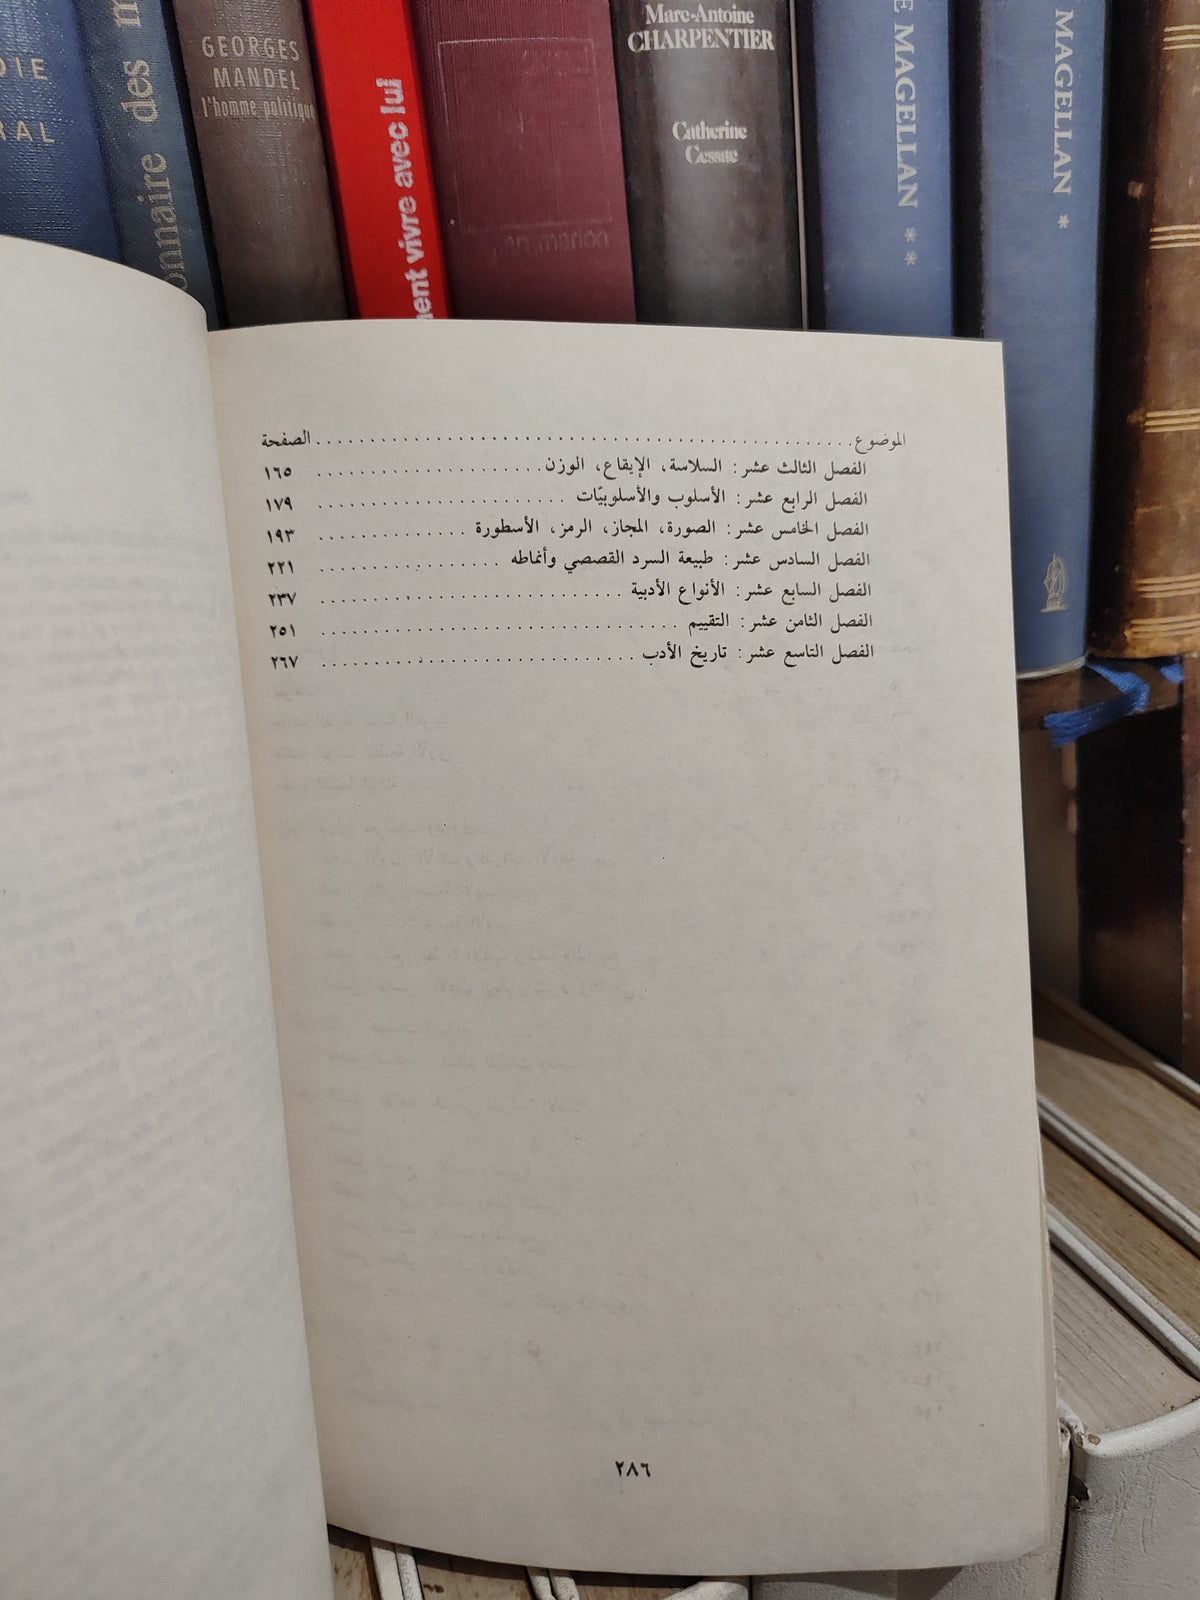 GEORGES
MANDEL
l'homme politique
vivre avec lui
Marc-Antoine
CHARPENTIER
Catherine
Cessac
MAGELLAN **
MAGELLAN *
الموضوع الصفحة
الفصل الثالث عشر: السلاسة، الإيقاع، الوزن ١٦٥
الفصل الرابع عشر: الأسلوب والأسلوبيّات ١٧٩
الفصل الخامس عشر: الصورة، المجاز، الرمز، الأسطورة ١٩٣
الفصل السادس عشر: طبيعة السرد القصصي وأنماطه ٢٢١
الفصل السابع عشر: الأنواع الأدبية ٢٣٧
الفصل الثامن عشر: التقييم ٢٥١
الفصل التاسع عشر: تاريخ الأدب ٢٦٧
٢٨٦